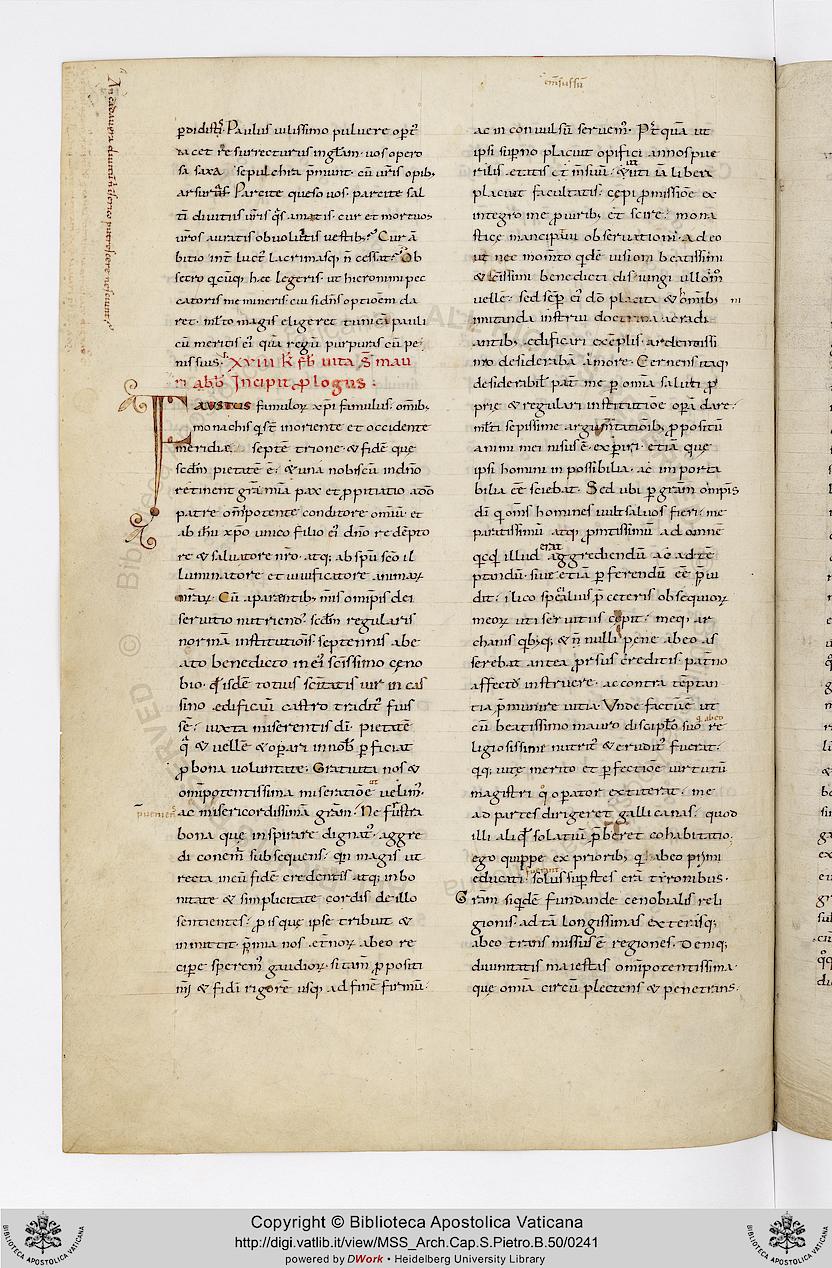 An cadauera diuitu nisi serico putrescere nesciunt
perdidistis. Paulus uilissimo puluere opertus
iacet resurrecturus in gloriam. uos opero
sa saxa sepulchra premunt. cu uris opib;
arsuros. Parcite queso uos. parcite sal
te diuitiis uris qs amatis. cur et mortuos
uros auratis obuoluitis uestib;? Cur a
bitio inter luctu lacrimasq; n cessat? Ob
secro quicuq; hec legeris. ut hieronimi pec
catoris memineris. cui si dns optione da
ret. multo magis eligeret tunica pauli
cu meritis ei. qua regu purpuras cu pe
nis suis. XVIII kl feb uita S mau
ri abb. Incipit Prologus.
FAUSTUS famulor xpi famulus. omib;
monachis qi st in oriente et occidente
meridie. septetrione. & fide que
scdm pietate e. & una nobiscu in dno
retinent. gra uia pax et ppitiatio a do
patre omipotente conditore omiu et
ab ihu xpo unico filio ei dno redepto
re & saluatore nro. atq; ab spu sco il
luminatore et uiuificatore animar
nrar. Cu a parentib; meis omipotentis dei
seruitio nutriendus. scdm regularis
norma institutionis septennis abe
ato benedicto in ei scissimo ceno
bio. qd isde totius scitatis uir in cas
sino edificiu castro traditus fuis
se. iuxta miserentis di pietate
qi & uelle & operari in nobis perficiat
pro bona uoluntate. Gratuita nos &
omipotentissima miseratione uelim
ac misericordissima gram. Ne frustra
bona que inspirare dignatus. aggre
di conemur subsequens. qin magis ut
recta in eu fide credentes atq; in bo
nitate & simplicitate cordis de illo
sentientes. pro isque ipse tribuit &
inmittit premia nos eternor abeo re
cipere speremus gaudior. si tam propositi
nri & fidei rigore usq; ad fine firmu.
ac in conuulsu seruem. Postqua ut
ipsi superno placuit opifici. annos pue
rilis etatis et mensuu. & uti ia libera
placuit facultatis. cepi promissione ex
integro me pluribus et scire. mona
stice mancipaui obseruationi. adeo
ut nec momto qde uisioni beatissimi
& scissimi benedicti disiungi ullom
uelle. sed semp ei do placita & omib; im
mitanda instrui doctrina. ac radi
antib; edificari exeplis ardentissi
mo desideraba amore. Cernens itaq;
desiderabile patre me p omia saluti pro
prie & regulari institutione opera dare.
multi sepissime argumtationib; propositu
animi mei nisus e experiri. etia que
ipsi homini inpossibilia. ac inporta
bilia ee sciebat. Sed ubi p gram omipotentis
di qi omis homines uult saluos fieri. me
paratissimu atq; promtissimu ad omne
qcqd illud erat aggrediendu ac adte
ptandu. siue etia pferendu ee preui
dit. ilico specialius pre ceteris obsequior
meor uti seruitiis cepit. meq; ar
chanis quibusq; & n nulli pene abeo as
serebat antea. prorsus creditis. paterno
affectu instruere. ac contra teptan
tia premunire uitia. Unde factu e ut
cu beatissimo mauro discipulo suo re
ligiosissime nutrit & erudit fuerat.
qq; uite merito et pfectione uirtutu
magistri qi operator extiterat. me
ad partes dirigeret gallicanas. quod
illi aliqd solatiu preberet cohabitatio.
ego quippe ex priorib; qi abeo primi
educati fuerunt. solus superstes era tyronibus.
Gram siqde fundande cenobialis reli
gionis. ad ta longissimas exterasq;
abeo trans missus e regiones. Deniq;
diuinitatis maiestas omipotentissima.
que omia circu plectens & penetrans.
Copyright © Biblioteca Apostolica Vaticana
http://digi.vatlib.it/view/MSS_Arch.Cap.S.Pietro.B.50/0241
powered by DWork • Heidelberg University Library
BIBLIOTECA APOSTOLICA VATICANA
BIBLIOTECA APOSTOLICA VATICANA